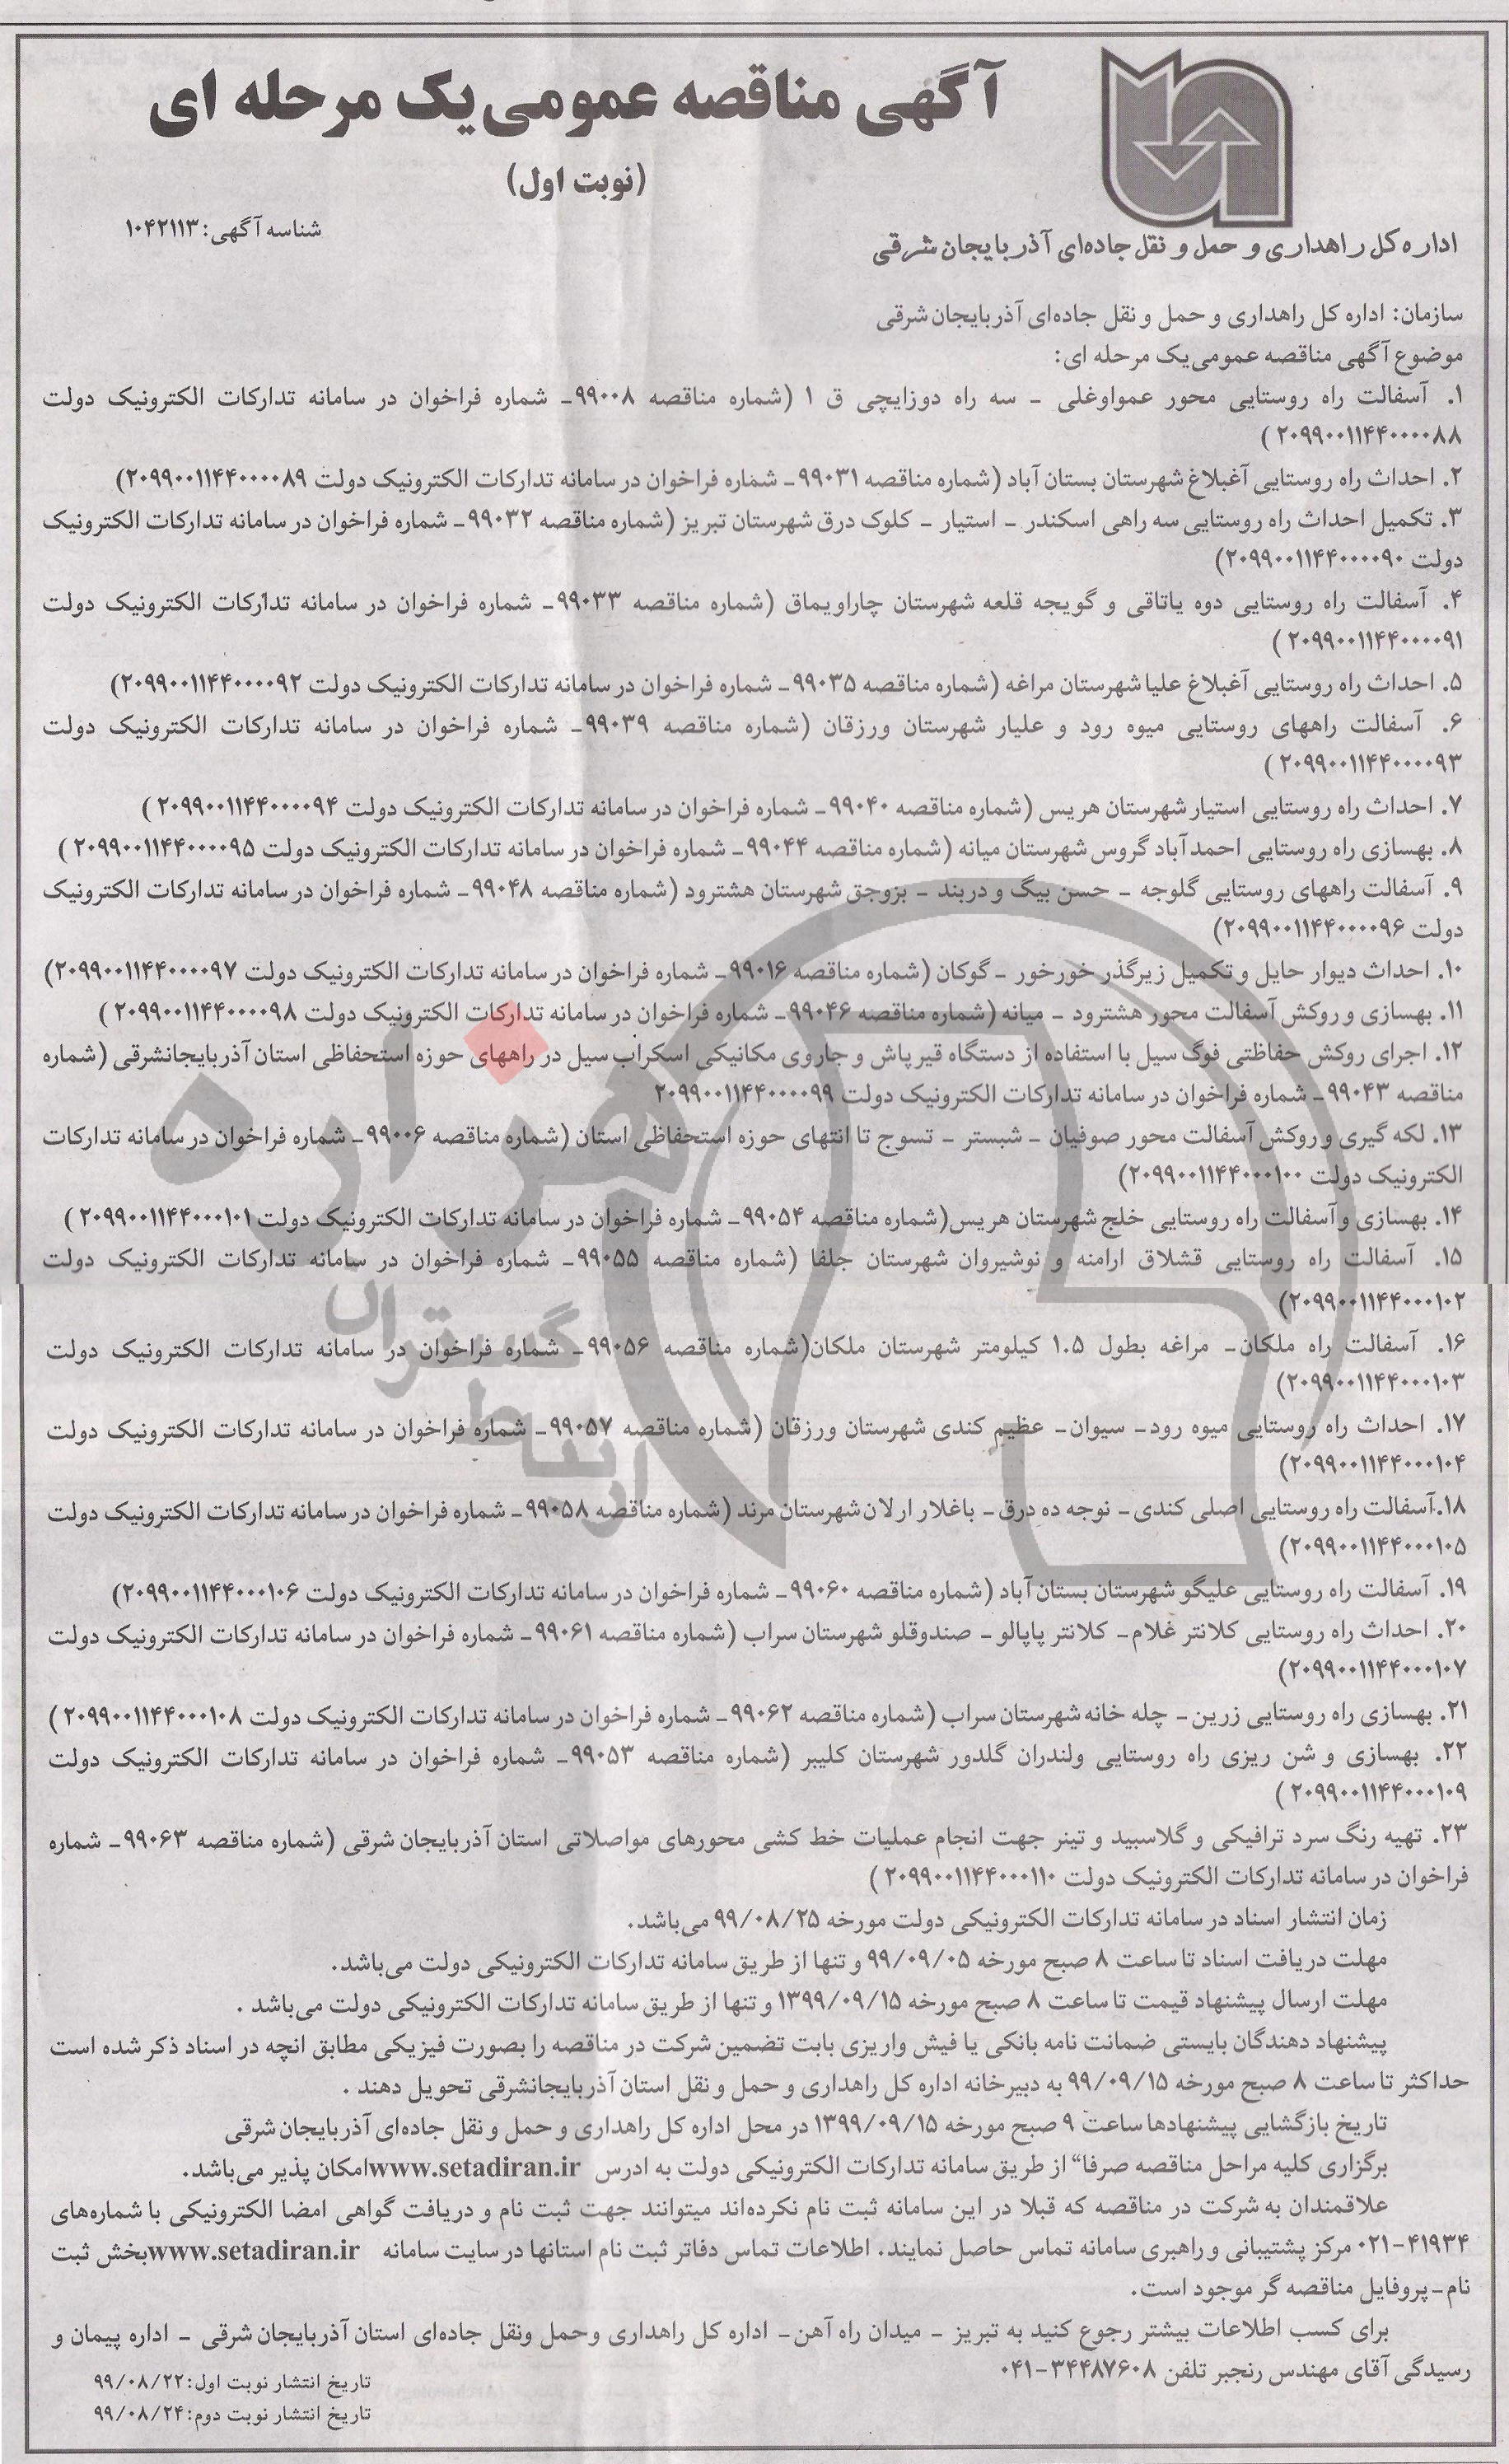 آگهی مناقصه عمومی یک مرحله ای
(نوبت اول)
شناسه آگهی: ۱۰۴۲۱۱۳
اداره کل راهداری و حمل و نقل جاده‌ای آذربایجان شرقی
سازمان: اداره کل راهداری و حمل و نقل جاده‌ای آذربایجان شرقی
موضوع آگهی مناقصه عمومی یک مرحله ای:
۱. آسفالت راه روستایی محور عمواوغلی - سه راه دوزایچی ق ۱ (شماره مناقصه ۹۹۰۰۸- شماره فراخوان در سامانه تدارکات الکترونیک دولت
۲۰۹۹۰۰۱۱۴۴۰۰۰۰۸۸ )
۲. احداث راه روستایی آغبلاغ شهرستان بستان آباد (شماره مناقصه ۹۹۰۳۱- شماره فراخوان در سامانه تدارکات الکترونیک دولت ۲۰۹۹۰۰۱۱۴۴۰۰۰۰۸۹)
۳. تکمیل احداث راه روستایی سه راهی اسکندر - استیار - کلوک درق شهرستان تبریز (شماره مناقصه ۹۹۰۳۲- شماره فراخوان در سامانه تدارکات الکترونیک
دولت ۲۰۹۹۰۰۱۱۴۴۰۰۰۰۹۰)
۴. آسفالت راه روستایی دوه یاتاقی و گویجه قلعه شهرستان چاراویماق (شماره مناقصه ۹۹۰۳۳- شماره فراخوان در سامانه تدارکات الکترونیک دولت
۲۰۹۹۰۰۱۱۴۴۰۰۰۰۹۱ )
۵. احداث راه روستایی آغبلاغ علیا شهرستان مراغه (شماره مناقصه ۹۹۰۳۵- شماره فراخوان در سامانه تدارکات الکترونیک دولت ۲۰۹۹۰۰۱۱۴۴۰۰۰۰۹۲)
۶. آسفالت راههای روستایی میوه رود و علیار شهرستان ورزقان (شماره مناقصه ۹۹۰۳۹- شماره فراخوان در سامانه تدارکات الکترونیک دولت
۲۰۹۹۰۰۱۱۴۴۰۰۰۰۹۳ )
۷. احداث راه روستایی استیار شهرستان هریس (شماره مناقصه ۹۹۰۴۰- شماره فراخوان در سامانه تدارکات الکترونیک دولت ۲۰۹۹۰۰۱۱۴۴۰۰۰۰۹۴ )
۸. بهسازی راه روستایی احمدآباد گروس شهرستان میانه (شماره مناقصه ۹۹۰۴۴- شماره فراخوان در سامانه تدارکات الکترونیک دولت ۲۰۹۹۰۰۱۱۴۴۰۰۰۰۹۵ )
۹. آسفالت راههای روستایی گلوجه - حسن بیگ و دربند - بزوجق شهرستان هشترود (شماره مناقصه ۹۹۰۴۸- شماره فراخوان در سامانه تدارکات الکترونیک
دولت ۲۰۹۹۰۰۱۱۴۴۰۰۰۰۹۶)
۱۰. احداث دیوار حایل و تکمیل زیرگذر خورخور - گوکان (شماره مناقصه ۹۹۰۱۶- شماره فراخوان در سامانه تدارکات الکترونیک دولت ۲۰۹۹۰۰۱۱۴۴۰۰۰۰۹۷)
۱۱. بهسازی و روکش آسفالت محور هشترود - میانه (شماره مناقصه ۹۹۰۴۶- شماره فراخوان در سامانه تدارکات الکترونیک دولت ۲۰۹۹۰۰۱۱۴۴۰۰۰۰۹۸ )
۱۲. اجرای روکش حفاظتی فوگ سیل با استفاده از دستگاه قیرپاش و جاروی مکانیکی اسکراب سیل در راههای حوزه استحفاظی استان آذربایجانشرقی (شماره
مناقصه ۹۹۰۴۳- شماره فراخوان در سامانه تدارکات الکترونیک دولت ۲۰۹۹۰۰۱۱۴۴۰۰۰۰۹۹
۱۳. لکه گیری و روکش آسفالت محور صوفیان - شبستر - تسوج تا انتهای حوزه استحفاظی استان (شماره مناقصه ۹۹۰۰۶- شماره فراخوان در سامانه تدارکات
الکترونیک دولت ۲۰۹۹۰۰۱۱۴۴۰۰۰۱۰۰)
۱۴. بهسازی و آسفالت راه روستایی خلج شهرستان هریس(شماره مناقصه ۹۹۰۵۴- شماره فراخوان در سامانه تدارکات الکترونیک دولت ۲۰۹۹۰۰۱۱۴۴۰۰۰۱۰۱ )
۱۵. آسفالت راه روستایی قشلاق ارامنه و نوشیروان شهرستان جلفا (شماره مناقصه ۹۹۰۵۵- شماره فراخوان در سامانه تدارکات الکترونیک دولت
۲۰۹۹۰۰۱۱۴۴۰۰۰۱۰۲)
۱۶. آسفالت راه ملکان- مراغه بطول ۱.۵ کیلومتر شهرستان ملکان(شماره مناقصه ۹۹۰۵۶- شماره فراخوان در سامانه تدارکات الکترونیک دولت
۲۰۹۹۰۰۱۱۴۴۰۰۰۱۰۳)
۱۷. احداث راه روستایی میوه رود- سیوان- عظیم کندی شهرستان ورزقان (شماره مناقصه ۹۹۰۵۷- شماره فراخوان در سامانه تدارکات الکترونیک دولت
۲۰۹۹۰۰۱۱۴۴۰۰۰۱۰۴)
۱۸.آسفالت راه روستایی اصلی کندی- نوجه ده درق- باغلار ارلان شهرستان مرند (شماره مناقصه ۹۹۰۵۸- شماره فراخوان در سامانه تدارکات الکترونیک دولت
۲۰۹۹۰۰۱۱۴۴۰۰۰۱۰۵)
۱۹. آسفالت راه روستایی علیگو شهرستان بستان آباد (شماره مناقصه ۹۹۰۶۰- شماره فراخوان در سامانه تدارکات الکترونیک دولت ۲۰۹۹۰۰۱۱۴۴۰۰۰۱۰۶)
۲۰. احداث راه روستایی کلانتر غلام- کلانتر پاپالو- صندوقلو شهرستان سراب (شماره مناقصه ۹۹۰۶۱- شماره فراخوان در سامانه تدارکات الکترونیک دولت
۲۰۹۹۰۰۱۱۴۴۰۰۰۱۰۷)
۲۱. بهسازی راه روستایی زرین- چله خانه شهرستان سراب (شماره مناقصه ۹۹۰۶۲- شماره فراخوان در سامانه تدارکات الکترونیک دولت ۲۰۹۹۰۰۱۱۴۴۰۰۰۱۰۸ )
۲۲. بهسازی و شن ریزی راه روستایی ولندران گلدور شهرستان کلیبر (شماره مناقصه ۹۹۰۵۳- شماره فراخوان در سامانه تدارکات الکترونیک دولت
۲۰۹۹۰۰۱۱۴۴۰۰۰۱۰۹ )
۲۳. تهیه رنگ سرد ترافیکی و گلاسبید و تینر جهت انجام عملیات خط کشی محورهای مواصلاتی استان آذربایجان شرقی (شماره مناقصه ۹۹۰۶۳- شماره
فراخوان در سامانه تدارکات الکترونیک دولت ۲۰۹۹۰۰۱۱۴۴۰۰۰۱۱۰ )
زمان انتشار اسناد در سامانه تدارکات الکترونیکی دولت مورخه ۹۹/۰۸/۲۵ می‌باشد.
مهلت دریافت اسناد تا ساعت ۸ صبح مورخه ۹۹/۰۹/۰۵ و تنها از طریق سامانه تدارکات الکترونیکی دولت می‌باشد.
مهلت ارسال پیشنهاد قیمت تا ساعت ۸ صبح مورخه ۱۳۹۹/۰۹/۱۵ و تنها از طریق سامانه تدارکات الکترونیکی دولت می‌باشد .
پیشنهاد دهندگان بایستی ضمانت نامه بانکی یا فیش واریزی بابت تضمین شرکت در مناقصه را بصورت فیزیکی مطابق انچه در اسناد ذکر شده است
حداکثر تا ساعت ۸ صبح مورخه ۹۹/۰۹/۱۵ به دبیرخانه اداره کل راهداری و حمل و نقل استان آذربایجانشرقی تحویل دهند .
تاریخ بازگشایی پیشنهادها ساعت ۹ صبح مورخه ۱۳۹۹/۰۹/۱۵ در محل اداره کل راهداری و حمل و نقل جاده‌ای آذربایجان شرقی
برگزاری کلیه مراحل مناقصه صرفا“ از طریق سامانه تدارکات الکترونیکی دولت به ادرس www.setadiran.ir امکان پذیر می‌باشد.
علاقمندان به شرکت در مناقصه که قبلا در این سامانه ثبت نام نکرده‌اند میتوانند جهت ثبت نام و دریافت گواهی امضا الکترونیکی با شماره‌های
۰۲۱-۴۱۹۳۴ مرکز پشتیبانی و راهبری سامانه تماس حاصل نمایند. اطلاعات تماس دفاتر ثبت نام استانها در سایت سامانه www.setadiran.ir بخش ثبت
نام-پروفایل مناقصه گر موجود است.
برای کسب اطلاعات بیشتر رجوع کنید به تبریز - میدان راه آهن- اداره کل راهداری وحمل ونقل جاده‌ای استان آذربایجان شرقی - اداره پیمان و
رسیدگی آقای مهندس رنجبر تلفن ۰۴۱-۳۴۴۸۷۶۰۸
تاریخ انتشار نوبت اول: ۹۹/۰۸/۲۲
تاریخ انتشار نوبت دوم: ۹۹/۰۸/۲۴
هزاره
ارتباط گستران